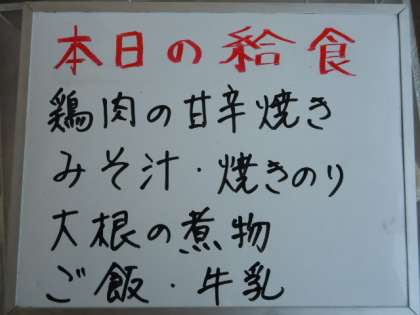 本日の給食
鶏肉の甘辛焼き
みそ汁・焼きのり
大根の煮物
ご飯・牛乳